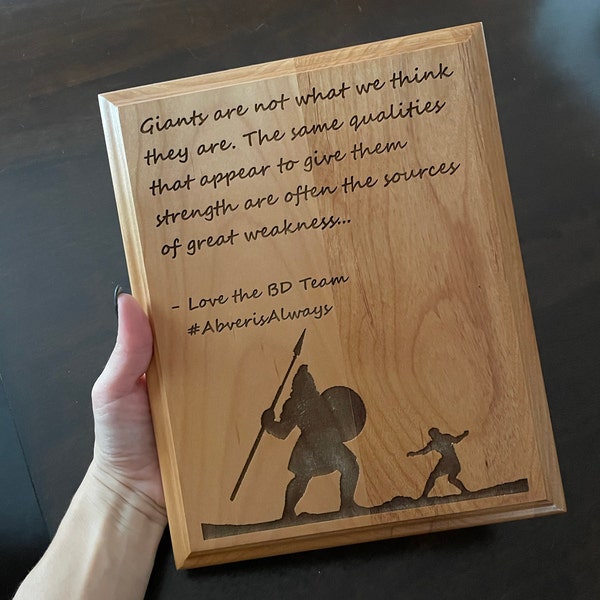 Giants are not what we think
they are. The same qualities
that appear to give them
strength are often the sources
of great weakness...
- Love the BD Team
#AbverisAlways